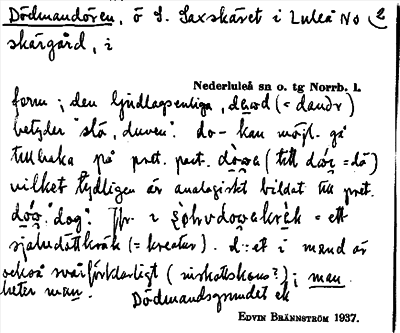 Dödmandören, ö S. Saxskäret i Luleå No 2
skärgård, i
Nederluleå sn o. tg Norrb. l.
form; den ljudlagsenliga, (= daudr)
betyder "slö, duven". do- kan möjl. gå
tillbaka på pret. part. (till = dö)
vilket tydligen är analogiskt bildat till pret.
"dog". Jfr. i = ett
självdött kräk (= kreatur). d:et i mand är
också svårförklarligt ( ); man
heter man. Dödmandsgrundet ek
EDVIN BRÄNNSTRÖM 1937.